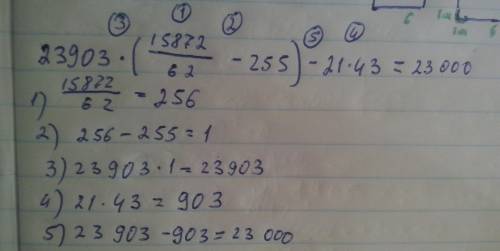 ③ ① ② ⑤ ④
23903 · (15872/62 - 255) - 21·43 = 23000
1) 15872/62 = 256
2) 256 - 255 = 1
3) 23903·1 = 23903
4) 21·43 = 903
5) 23 903 - 903 = 23 000